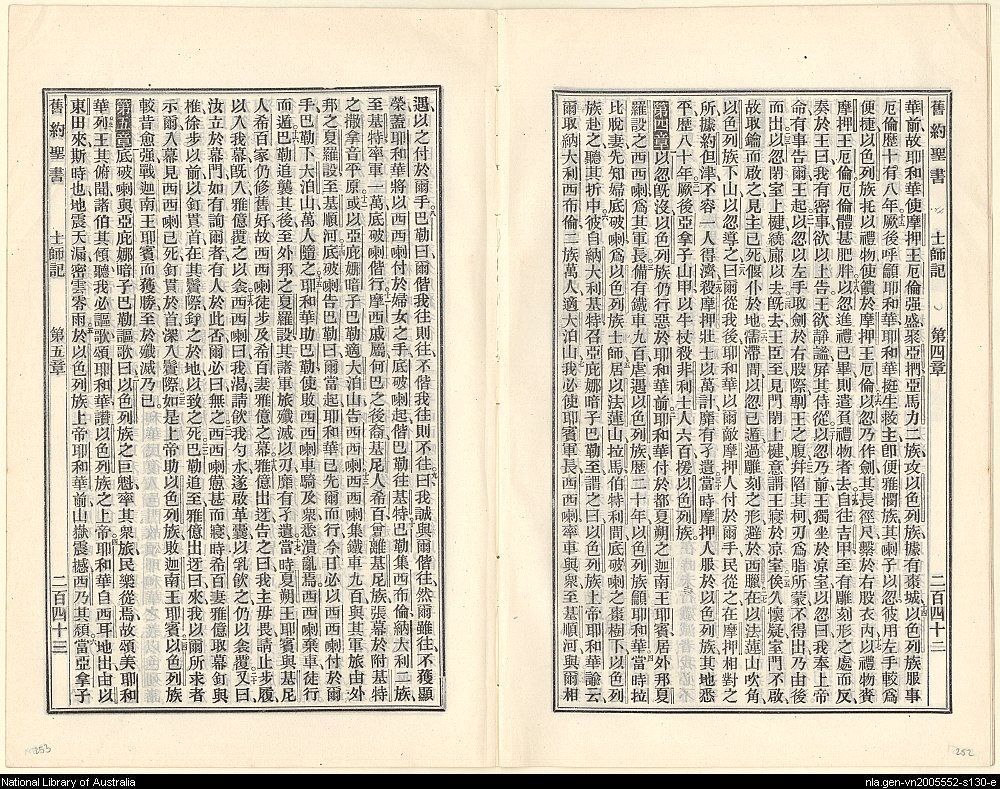 舊約聖書 士師記 第四章 二百四十二
華前故耶和華使摩押王厄倫强盛聚亞捫亞馬力二族攻以色列族據有棗城以色列族服事
厄倫歷十有八年厥後呼籲耶和華耶和華挺生救主卽便雅憫族其喇子以忽彼用左手較爲
便捷以色列族托以禮物使饋於摩押王厄倫以忽乃作劍其長徑尺繫於右股衣內以禮物賚
摩押王厄倫厄倫體甚肥胖以忽進禮已畢則遣負禮物者去自往吉甲至有雕刻形之處而反
奏於王曰我有密事欲以上告王欲靜謐屏其侍從以忽乃前王獨坐於凉室以忽曰我奉上帝
命有事告爾王起以忽以左手取劍於右股際剚王之腹幷陷其柯刃爲脂所蒙不得出乃由後
而出以忽閉室上楗繞廊以去旣去王臣至見門閉上楗意謂王寢於凉室俟久懷疑室門不啟
故取鑰而啟之見主已死偃仆於地濡滯間以忽已遁過雕刻之形避於西臘在以法蓮山吹角
以色列族下山以忽導之曰爾從我後耶和華以爾敵摩押人付於爾手民從之在摩押相對之
所據約但津不容一人得濟殺摩押壯士以萬計靡有孑遺當時摩押人服於以色列族其地悉
平歷八十年厥後亞拿子山甲以牛杖殺非利士人六百援以色列族
第四章以忽旣沒以色列族仍行惡於耶和華前耶和華付於都夏朔之迦南王耶賓居外邦夏
羅設之西西喇爲其軍長備有鐵車九百虐遇以色列族歷二十年以色列族籲耶和華當時拉
比脫妻先知婦底破喇爲以色列族士師居以法蓮山拉馬伯特利間底破喇之棗樹下以色列
族赴之聽其折中彼自納大利基特召亞庇娜暗子巴勒至謂之曰以色列族上帝耶和華諭云
爾取納大利西布倫二族萬人適大泊山我必使耶賓軍長西西喇率車與衆至基順河與爾相
252
遇以之付於爾手巴勒曰爾偕我往則往不偕我往則不往曰我誠與爾偕往然爾雖往不獲顯
榮蓋耶和華將以西西喇付於婦女之手底破喇起偕巴勒往基特巴勒集西布倫納大利二族
至基特率軍一萬底破喇偕行摩西戚屬何巴之後裔基尼人希百曾離基尼族張幕於附基特
之撒拿音平原或以亞庇娜暗子巴勒適大泊山告西西喇西西喇集鐵車九百與其軍旅由外
邦之夏羅設至基順河底破喇告巴勒曰爾當起耶和華已先爾而行今日必以西西喇付於爾
手巴勒下大泊山萬人隨之耶和華助巴勒使敗西西喇車騎及衆悉潰亂焉西西喇棄車徒行
而遁巴勒追襲其後至外邦之夏羅設其諸軍旅殲滅以刃靡有孑遺當時夏朔王耶賓與基尼
人希百家仍修舊好故西西喇徒步及希百妻雅億之幕雅億出迓告之曰我主毋畏請止步履
以入我幕旣入雅億覆之以衾西西喇曰我渴請飮我勺水遂啟革囊以乳飮之仍以衾覆又曰
汝立於幕門如有詢爾者有人於此否爾必曰無之西西喇憊甚而寢時希百妻雅億取幕釘與
椎徐步以前以釘貫首在其鬢際錚之於地以致之死巴勒追至雅億出迓曰來我以爾所求者
示爾入幕見西西喇已死釘貫於首深入鬢際如是上帝助以色列族敗迦南王耶賓以色列族
較昔愈强戰迦南王耶賓而獲勝至於殲滅乃已
第五章底破喇與亞庇娜暗子巴勒謳歌曰以色列族之巨魁率其衆族民樂從焉故頌美耶和
華列王其俯聞諸伯其傾聽我必謳歌頌耶和華讚以色列族之上帝耶和華自西耳地出由以
東田來斯時也地震天漏密雲零雨於以色列族上帝耶和華前山嶽震撼西乃其傾當亞拿子
舊約聖書 士師記 第五章 二百四十三
253
National Library of Australia
nla.gen-vn2005552-s130-e